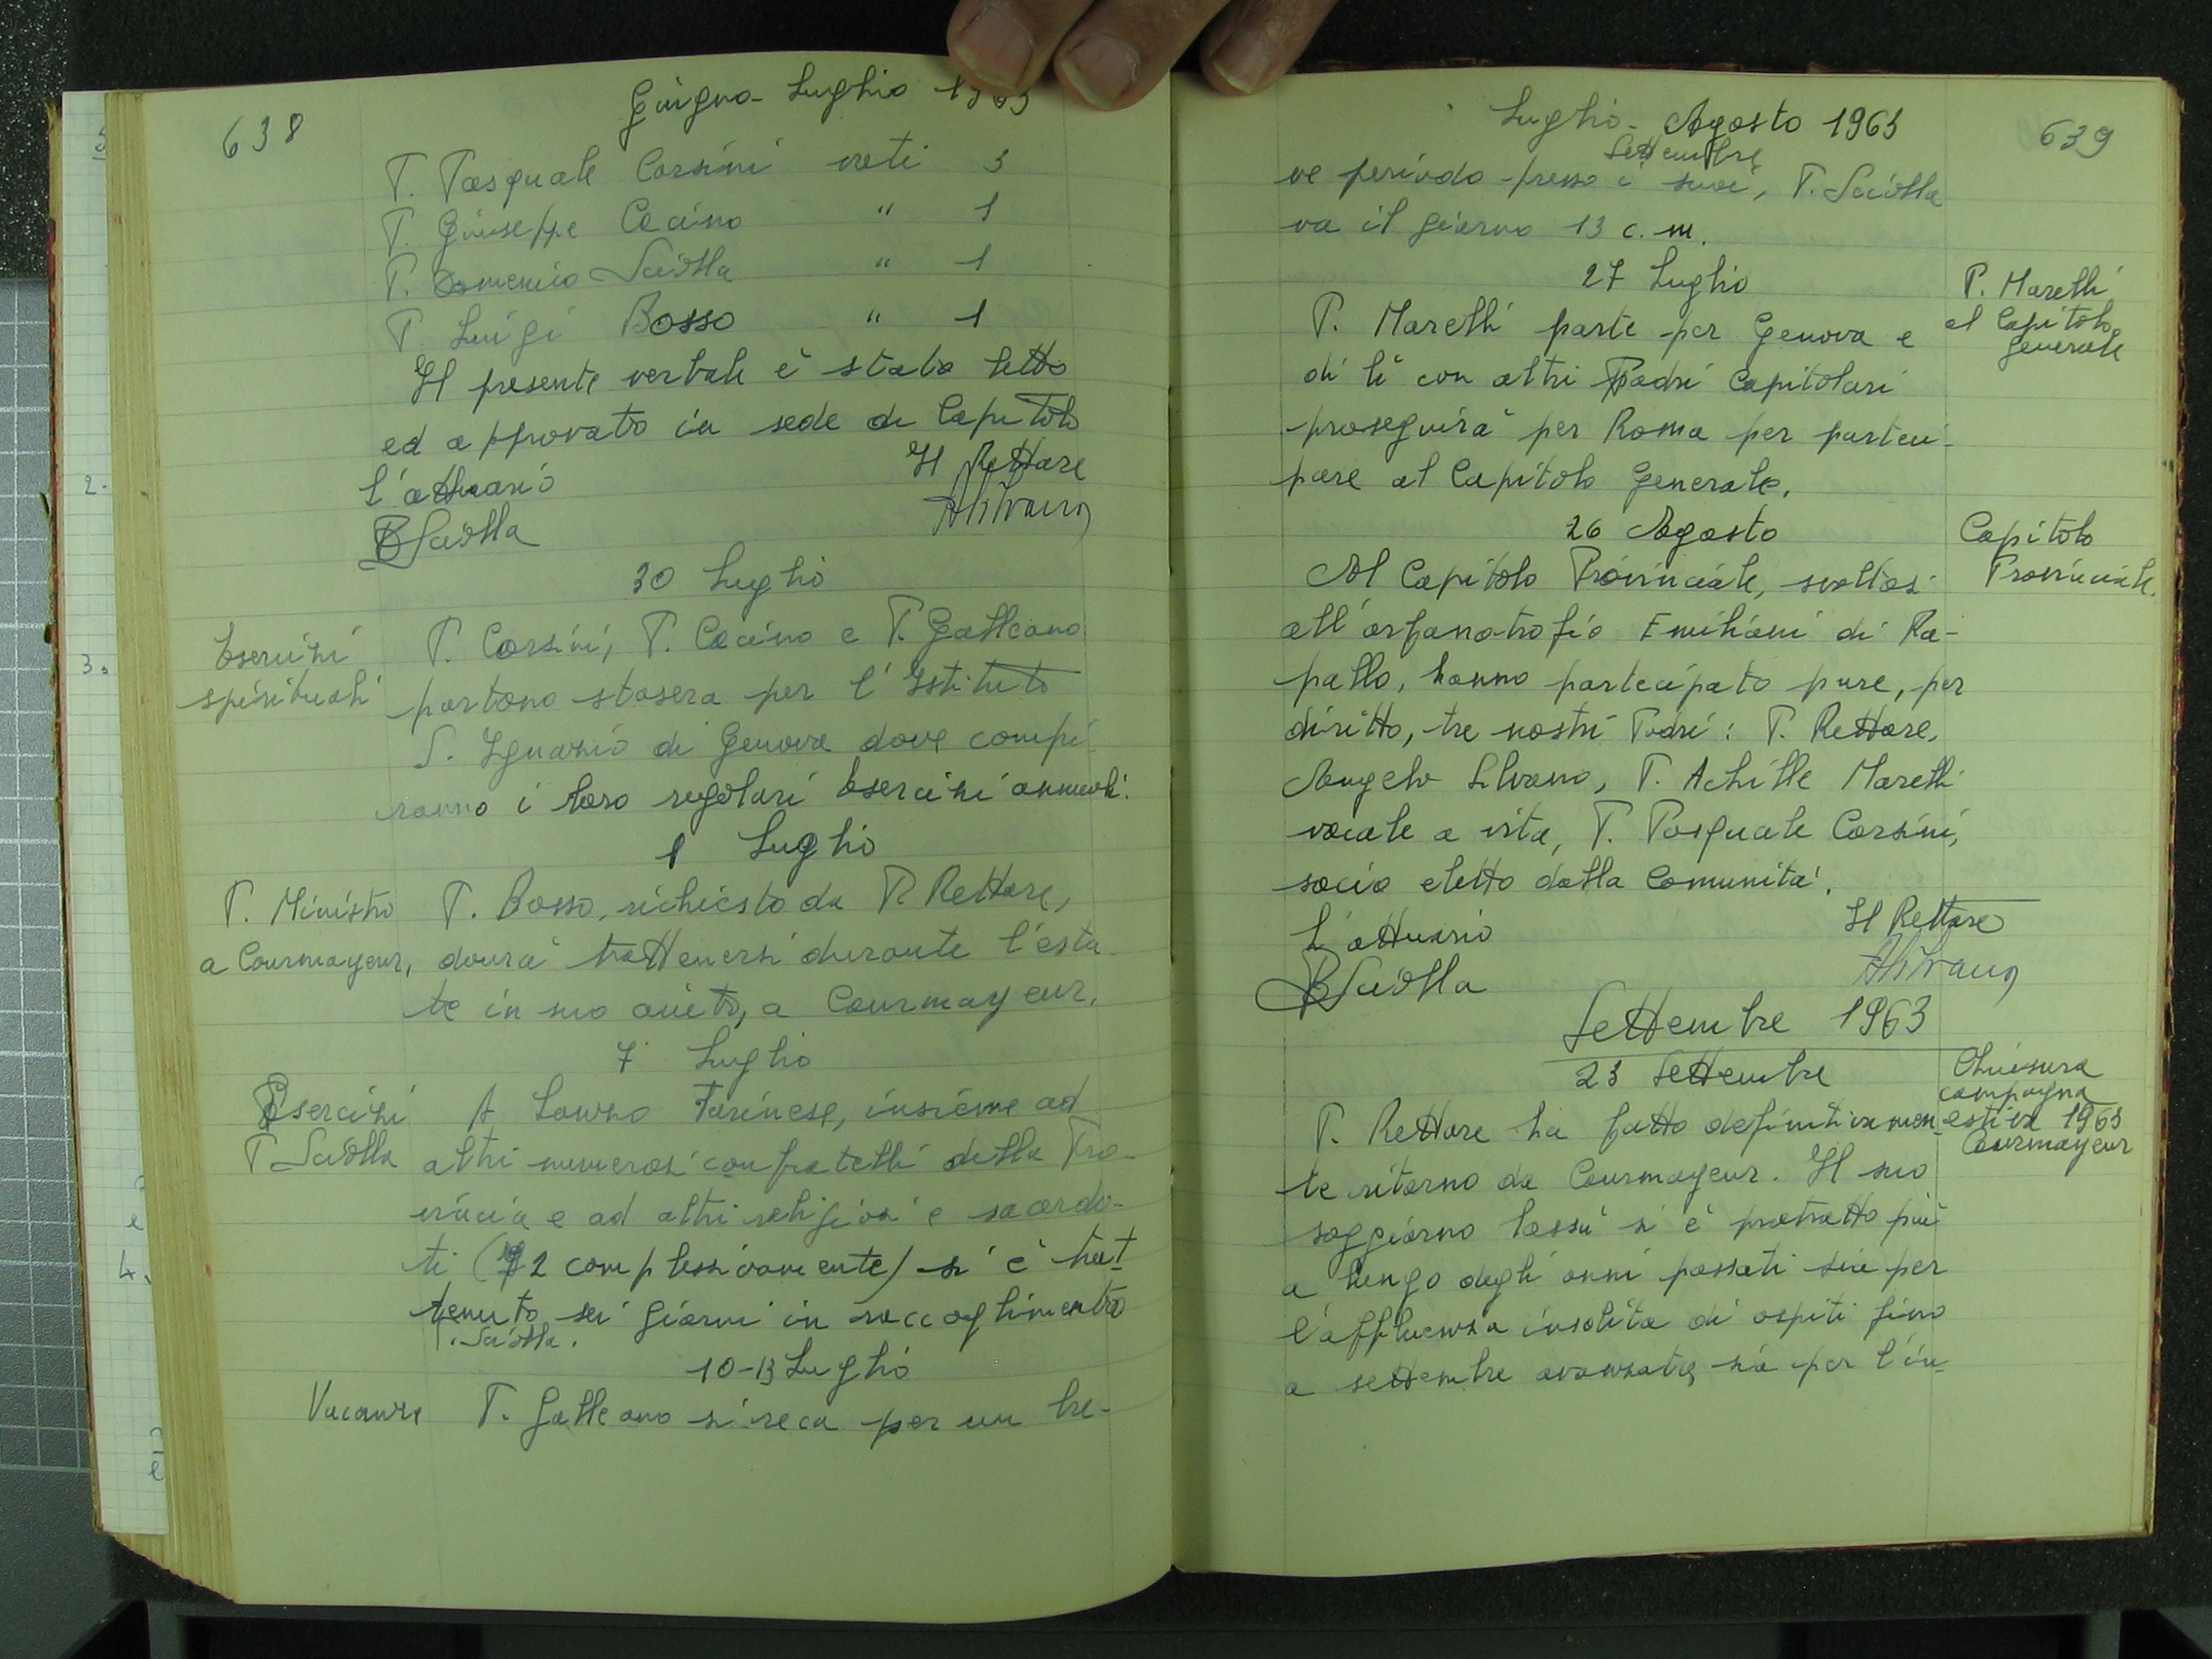 638
Giugno - Luglio 1963
P. Pasquale Corsini voti 3
P. Giuseppe Cocino " 1
P. Domenico Sciolla " 1
P. Luigi Bosso " 1
Il presente verbale è stato letto
ed approvato in sede di Capitolo
L'attuario Il Rettore
Sciolla
30 Luglio
Esercizi
spirituali
P. Corsini, P. Cocino e P. Galleano
partono stasera per l'Istituto
S. Ignazio di Genova dove compi
ranno i loro regolari Esercizi annuali.
1 Luglio
P. Ministro
a Courmayeur,
P. Bosso, richiesto da P. Rettore,
dovrà trattenersi durante l'esta-
te in suo aiuto, a Courmayeur.
7 Luglio
Esercizi
P Sciolla
A Lanzo Torinese, insieme ad
altri numerosi confratelli della Pro-
vincia e ad altri religiosi e sacerdo-
ti (72 complessivamente) si è trat-
tenuto sei giorni in raccoglimento
P. Sciolla.
10-13 Luglio
Vacanze P. Galleano si reca per un bre-
Luglio - Agosto 1963
Settembre
639
ve periodo presso i suoi, P. Sciolla
va il giorno 13 c. m.
27 Luglio
P. Marelli
al Capitolo
Generale
P. Marelli parte per Genova e
di lì con altri Padri Capitolari
proseguirà per Roma per parteci-
pare al Capitolo Generale.
26 Agosto
Capitolo
Provinciale.
Al Capitolo Provinciale, svoltosi
all'orfanotrofio Emiliani di Ra-
pallo, hanno partecipato pure, per
diritto, tre nostri Padri: P. Rettore,
Angelo Silvano, P. Achille Marelli
vocale a vita, P. Pasquale Corsini,
socio eletto dalla Comunità.
L'attuario Il Rettore
Sciolla
Settembre 1963
23 Settembre
Chiusura
campagna
estiva 1963
Courmayeur
P. Rettore ha fatto definitivamen-
te ritorno da Courmayeur. Il suo
soggiorno lassù si è protratto più
a lungo degli anni passati sia per
l'affluenza insolita di ospiti fino
a settembre avanzato, sia per l'in-